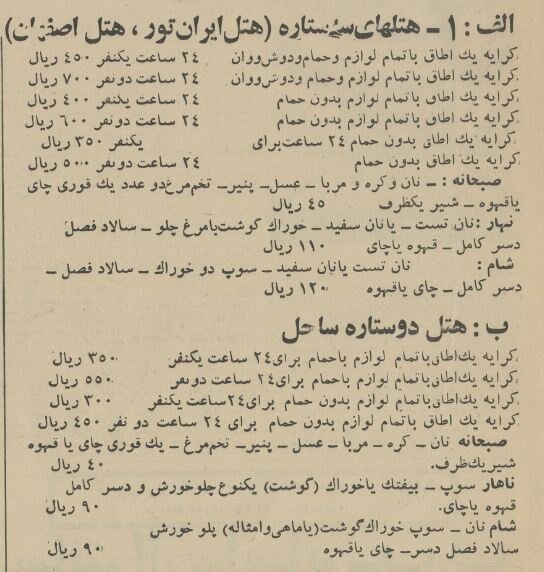 الف : ۱ ـ هتلهای سه‌ستاره (هتل ایران تور ، هتل اصفهان)
کرایه یك اطاق باتمام لوازم وحمام ودوش‌ووان ۲۴ ساعت یکنفر ۴۵۰ ریال
کرایه یك اطاق باتمام لوازم وحمام ودوش‌ووان ۲۴ ساعت دونفر ۷۰۰ ریال
کرایه یك اطاق باتمام لوازم بدون حمام ۲۴ ساعت یکنفر ۴۰۰ ریال
کرایه یك اطاق باتمام لوازم بدون حمام ۲۴ ساعت دونفر ۶۰۰ ریال
کرایه یك اطاق بدون حمام ۲۴ ساعت‌برای یکنفر ۳۵۰ ریال
کرایه یك اطاق بدون حمام ۲۴ ساعت دونفر ۵۰۰ ریال
صبحانه : ـ نان وکره و مربا ـ عسل ـ پنیر ـ تخم‌مرغ دو عدد یك قوری چای
یاقهوه ـ شیر یکظرف ۴۵ ریال
نهار : نان تست ـ یانان سفید ـ خوراك گوشت‌یامرغ چلو ـ سالاد فصل
دسر کامل ـ قهوه یاچای ۱۱۰ ریال
شام : نان تست یانان سفید ـ سوپ دو خوراك ـ سالاد فصل ـ
دسر کامل ـ چای یاقهوه ۱۲۰ ریال
ب : هتل دوستاره ساحل
کرایه یك‌اطاق باتمام لوازم باحمام برای ۲۴ ساعت یکنفر ۳۵۰ ریال
کرایه یك‌اطاق باتمام لوازم باحمام برای ۲۴ ساعت دونفر ۵۵۰ ریال
کرایه یك‌اطاق باتمام لوازم بدون حمام برای ۲۴ ساعت یکنفر ۳۰۰ ریال
کرایه یك اطاق باتمام لوازم بدون حمام برای ۲۴ ساعت دو نفر ۴۵۰ ریال
صبحانه نان ـ کره ـ مربا ـ عسل ـ پنیر ـ تخم‌مرغ ـ یك قوری چای یا قهوه
شیر یك‌ظرف. ۴۰ ریال
ناهار سوپ ـ بیفتك یاخوراك (گوشت) یکنوع چلوخورش و دسر کامل
قهوه یاچای. ۹۰ ریال
شام نان ـ سوپ خوراك گوشت (یاماهی وامثاله) پلو خورش
سالاد فصل دسرـ چای یاقهوه ۹۰ ریال